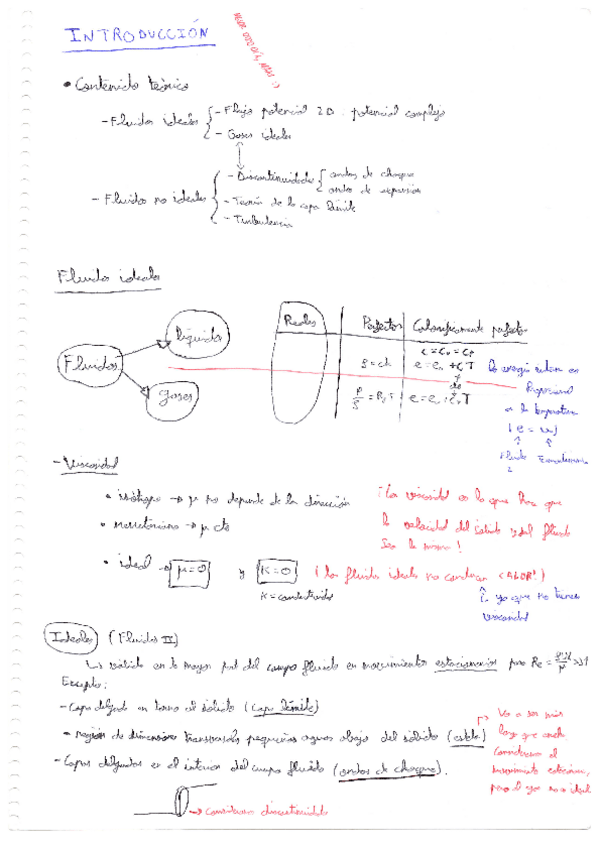 INTRODUCCIÓN
• Contenido teórico
- Fluidos ideales { - Flujo potencial 2D. potencial complejo
- Gases ideales
- Fluidos no ideales { - Discontinuidades { ondas de choque
ondas de expansión
- Teoría de la capa límite
- Turbulencia
Fluidos ideales
Fluidos
líquidos
gases
Reales
Perfectos
Calóricamente perfectos
c = cv = cp
ρ = cte
e = e0 + cT
cte
p/ρ = Rg T
e = e0 + cv T
La energía interna es
proporcional
a la temperatura
(e = u)
Fluidos
2
- Viscosidad
• isótropo → μ no depende de la dirección
• newtoniano → μ cte
• ideal → μ = 0 y K = 0 (los fluidos ideales no conducen CALOR!)
K = conductividad
¡La viscosidad es lo que hace que
la velocidad del sólido y del fluido
sea la misma!
ya que no tienen
viscosidad
Ideales (Fluidos II)
Es válido en la mayor parte del campo fluido en movimientos estacionarios para Re = >>1
Ejemplo:
- Capa delgada en torno al sólido (capa límite)
- región de dimensiones transversales pequeñas aguas abajo del sólido (estela)
- Capas delgadas en el interior del campo fluido (ondas de choque).
→ consideramos discontinuidades
Va a ser más
largo que ancho
Consideramos el
movimiento estacionario,
pero el no es ideal